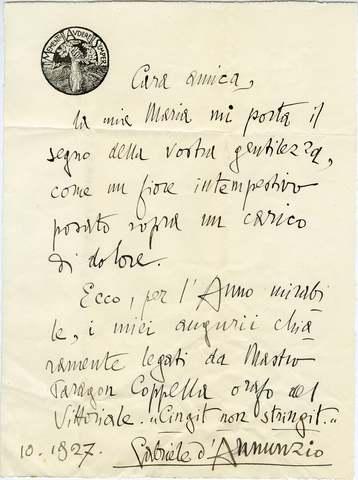 MEMENTO AUDERE SEMPER
Cara amica,
la mia Maria mi porta il
segno della vostra gentilezza,
come un fiore intempestivo
posato sopra un carico
di dolore.
Ecco, per l'Anno mirabi
le, i miei augurii chia
ramente legati da Mastro
Paragon Coppella orafo del
Vittoriale. "Cingit non stringit."
10. 1927. Gabriele d'Annunzio